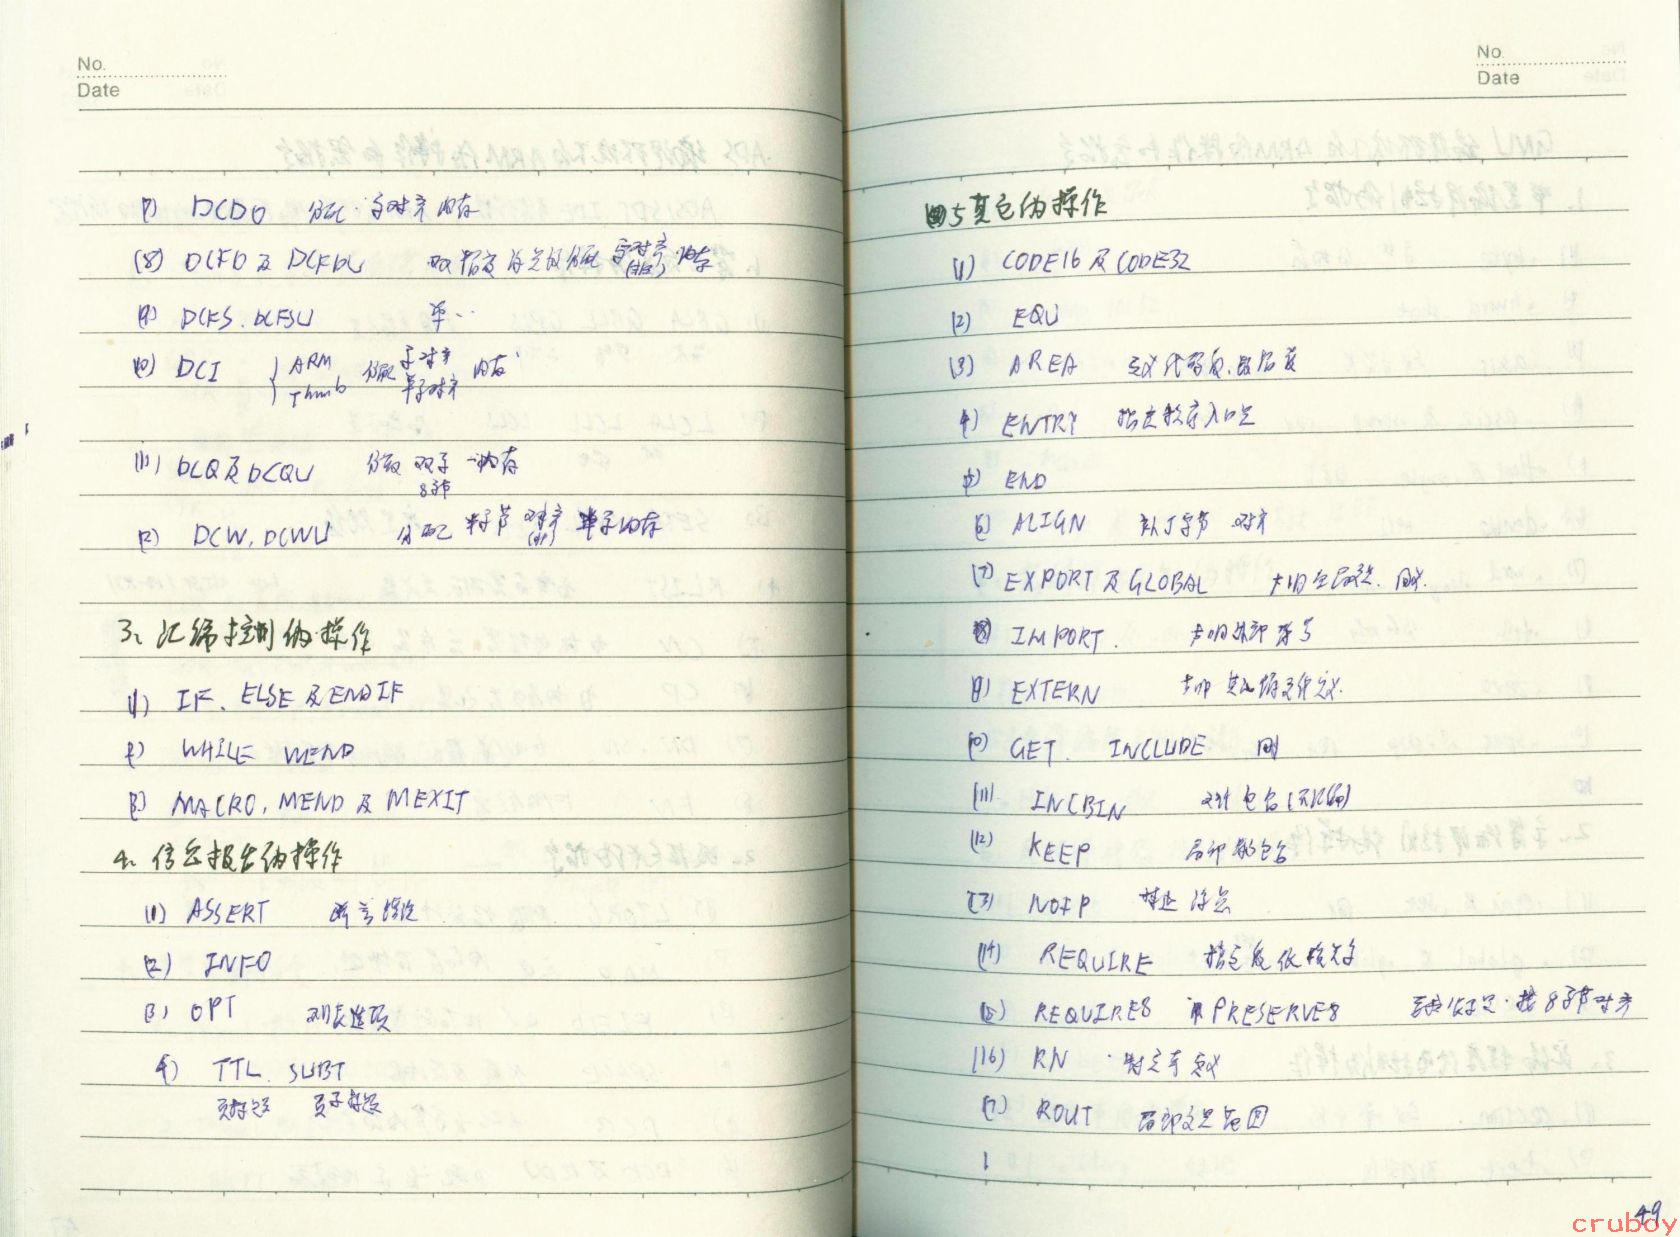 No.
Date
7) DCDO 分配 字对齐 内存
(8) DCFD 及 DCFDU 双精度浮点数分配 字对齐 内存
(9) DCFS. DCFSU 单…
(10) DCI { ARM 分配 字对齐 内存
Thumb 半字对齐
(11) DCQ 及 DCQU 分配 双字 内存
8字节
12) DCW, DCWU 分配 半字节 对齐 半字内存
3、汇编控制伪操作
(1) IF、ELSE 及 ENDIF
2) WHILE WEND
(3) MACRO, MEND 及 MEXIT
4、信息报告伪操作
(1) ASSERT 断言错误
(2) INFO
(3) OPT 列表选项
4) TTL SUBT
页标题 页子标题
No.
Date
5 其它伪操作
(1) CODE16 及 CODE32
(2) EQU
(3) AREA 定义代码段、数据段
4) ENTRY 指定程序入口点
5) END
6) ALIGN 补丁字节 对齐
(7) EXPORT 及 GLOBAL 声明全局
8) IMPORT. 声明外部符号
9) EXTERN 其他
10) GET. INCLUDE 同
(11) INCBIN 文件包含 (不编)
(12) KEEP 局部 包含
(13) NOFP 禁止浮点
(14) REQUIRE 指定段依赖关系
(15) REQUIRE8 PRESERVE8 按8字节对齐
(16) RN 特定寄 定义
(17) ROUT 局部变量范围
49
cruboy